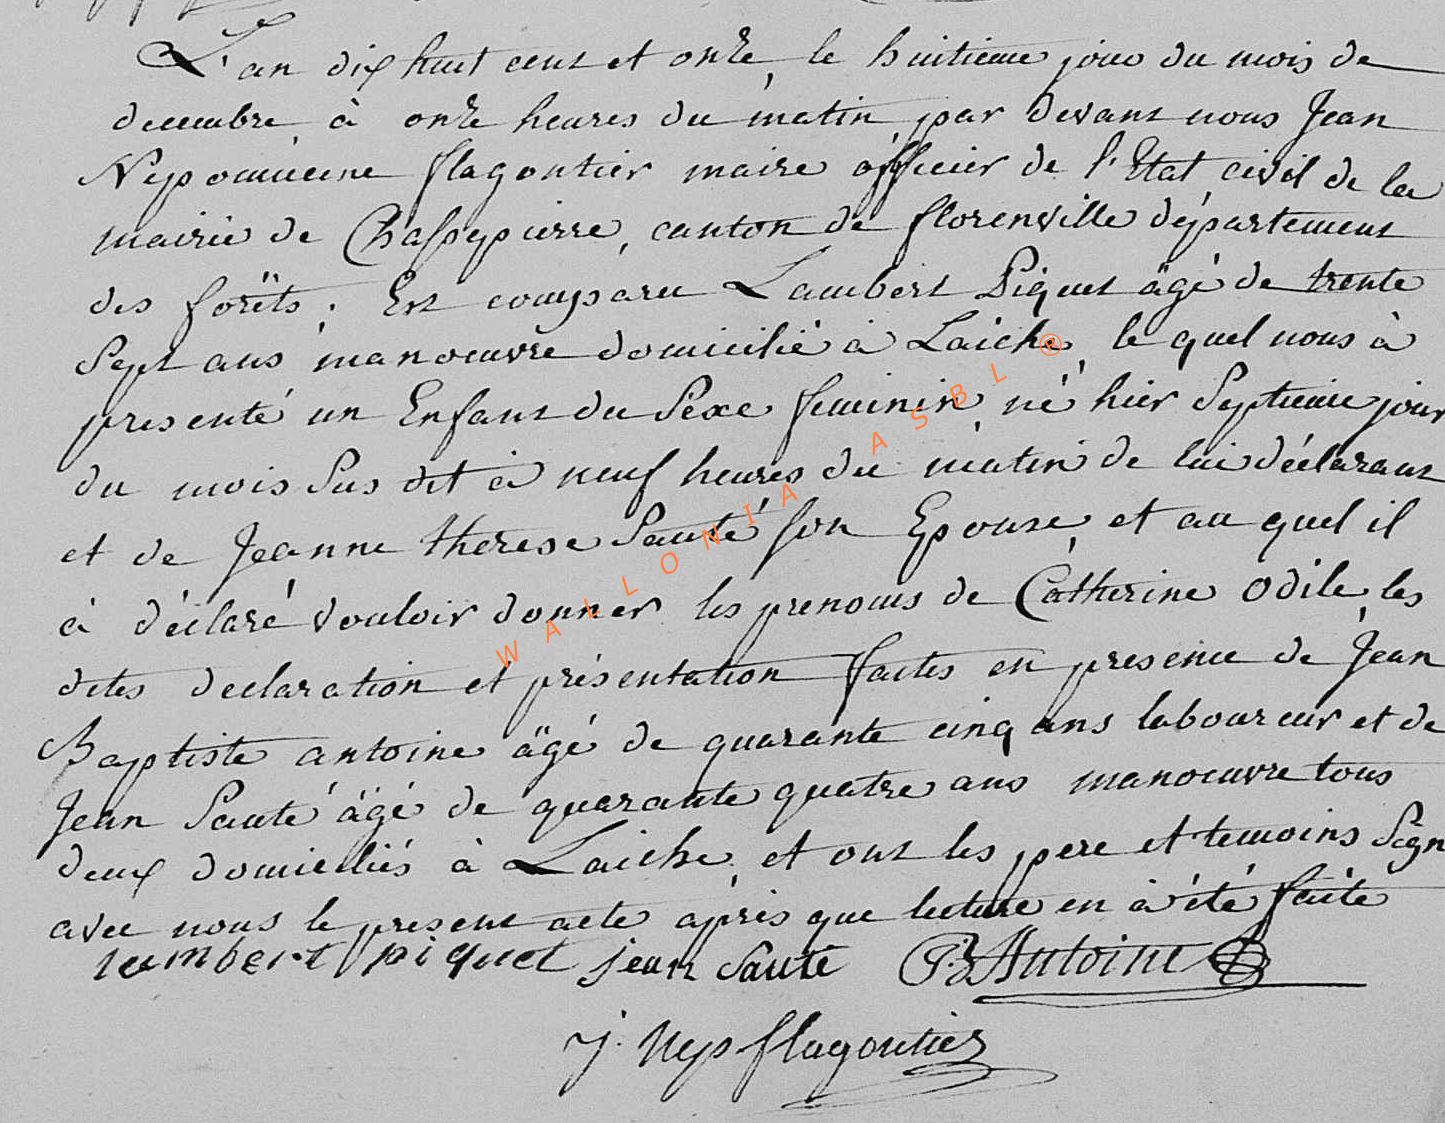 L'an dix huit cent et onze, le huitieme jour du mois de
decembre, à onze heures du matin, par devant nous Jean
Nepomucene flagontier maire officier de l'Etat civil de la
mairie de Chassepierre, canton de florenville département
des forêts; Est comparu Lambert Piquet âgé de trente
Sept ans, manoeuvre domicilié à Laiche, le quel nous à
presenté un Enfant du Sexe feminin né hier Septieme jour
du mois Sus dit à neuf heures du matin de lui déclarant
et de Jeanne therese Sauté son Epouse, et au quel il
à déclaré vouloir donner les prenoms de Catherine Odile, les
dites declaration et présentation faites en presence de Jean
Baptiste antoine âgé de quarante cinq ans laboureur et de
Jean Sauté âgé de quarante quatre ans manoeuvre tous
deux domiciliés à Laiche, et ont les pere et temoins Sign
avec nous le present acte après que lecture en à été faite
lambert piquet jean Sauté J B Antoine
j. Nep flagontier
WALLONIA ASBL ®